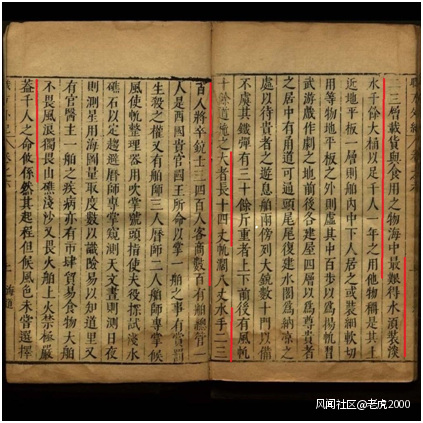 二三層載貨與食用之物海中最難得水須裝淡
水千餘大桶以足千人一年之用他物稱是其上
近地平板一層則舶內中下人居之或裝細軟切
用等物地平板之外則虛其中百步以爲揚帆習
武游戲作劇之地前後各建屋四層以爲尊貴者
之居中有甬道可通頭尾尾復建水閣爲納凉之
處以待貴者之遊息舶兩傍列大銃數十門以備
不虞其鐵彈有三十餘斤重者上下前後有風帆
十餘道桅之大者長十四丈帆闊八丈水手二三
百人將卒銃士三四百人客商數百有舶總管一
人是西國貴官國王所命以掌一舶之事有賞罰
生殺之權又有舶師三人曆師二人舶師專掌候
風使帆整理器用吹掌號頭指使夫役探試淺水
礁石以定趨避曆師專掌窺測天文晝則測日夜
則測星用海圖量取度數以識險易以知道里又
有官醫主一舶之疾病亦有市肆貿易食物大舶
不畏風浪獨畏山礁淺沙又畏火舶上火禁極嚴
葢千人之命攸係然其起程但候風色未嘗選擇
風闻社区@老虎2000